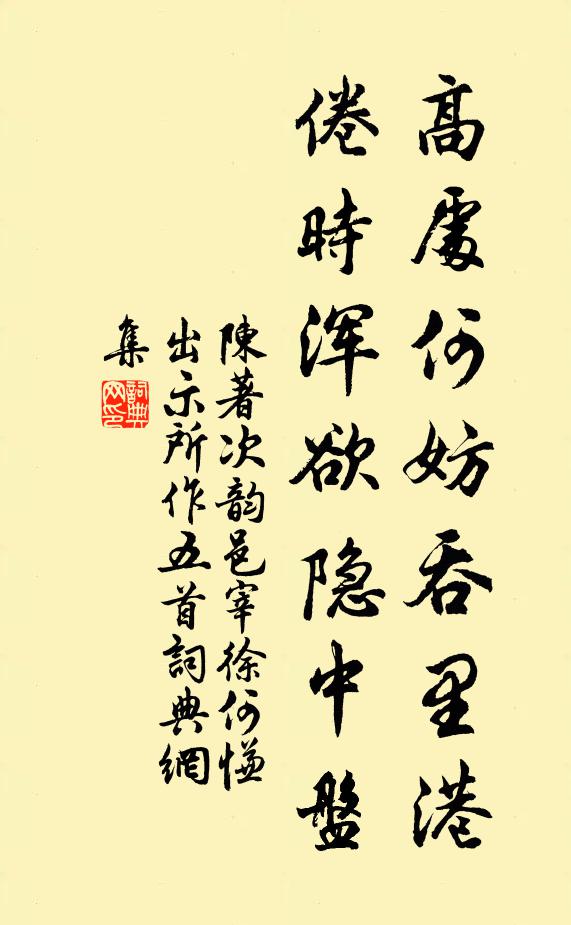 高處何妨吞里港
倦時渾欲隐中盤
陳著次韵邑宰徐何慊
出示所作五首詞典網
集
詞典
网印